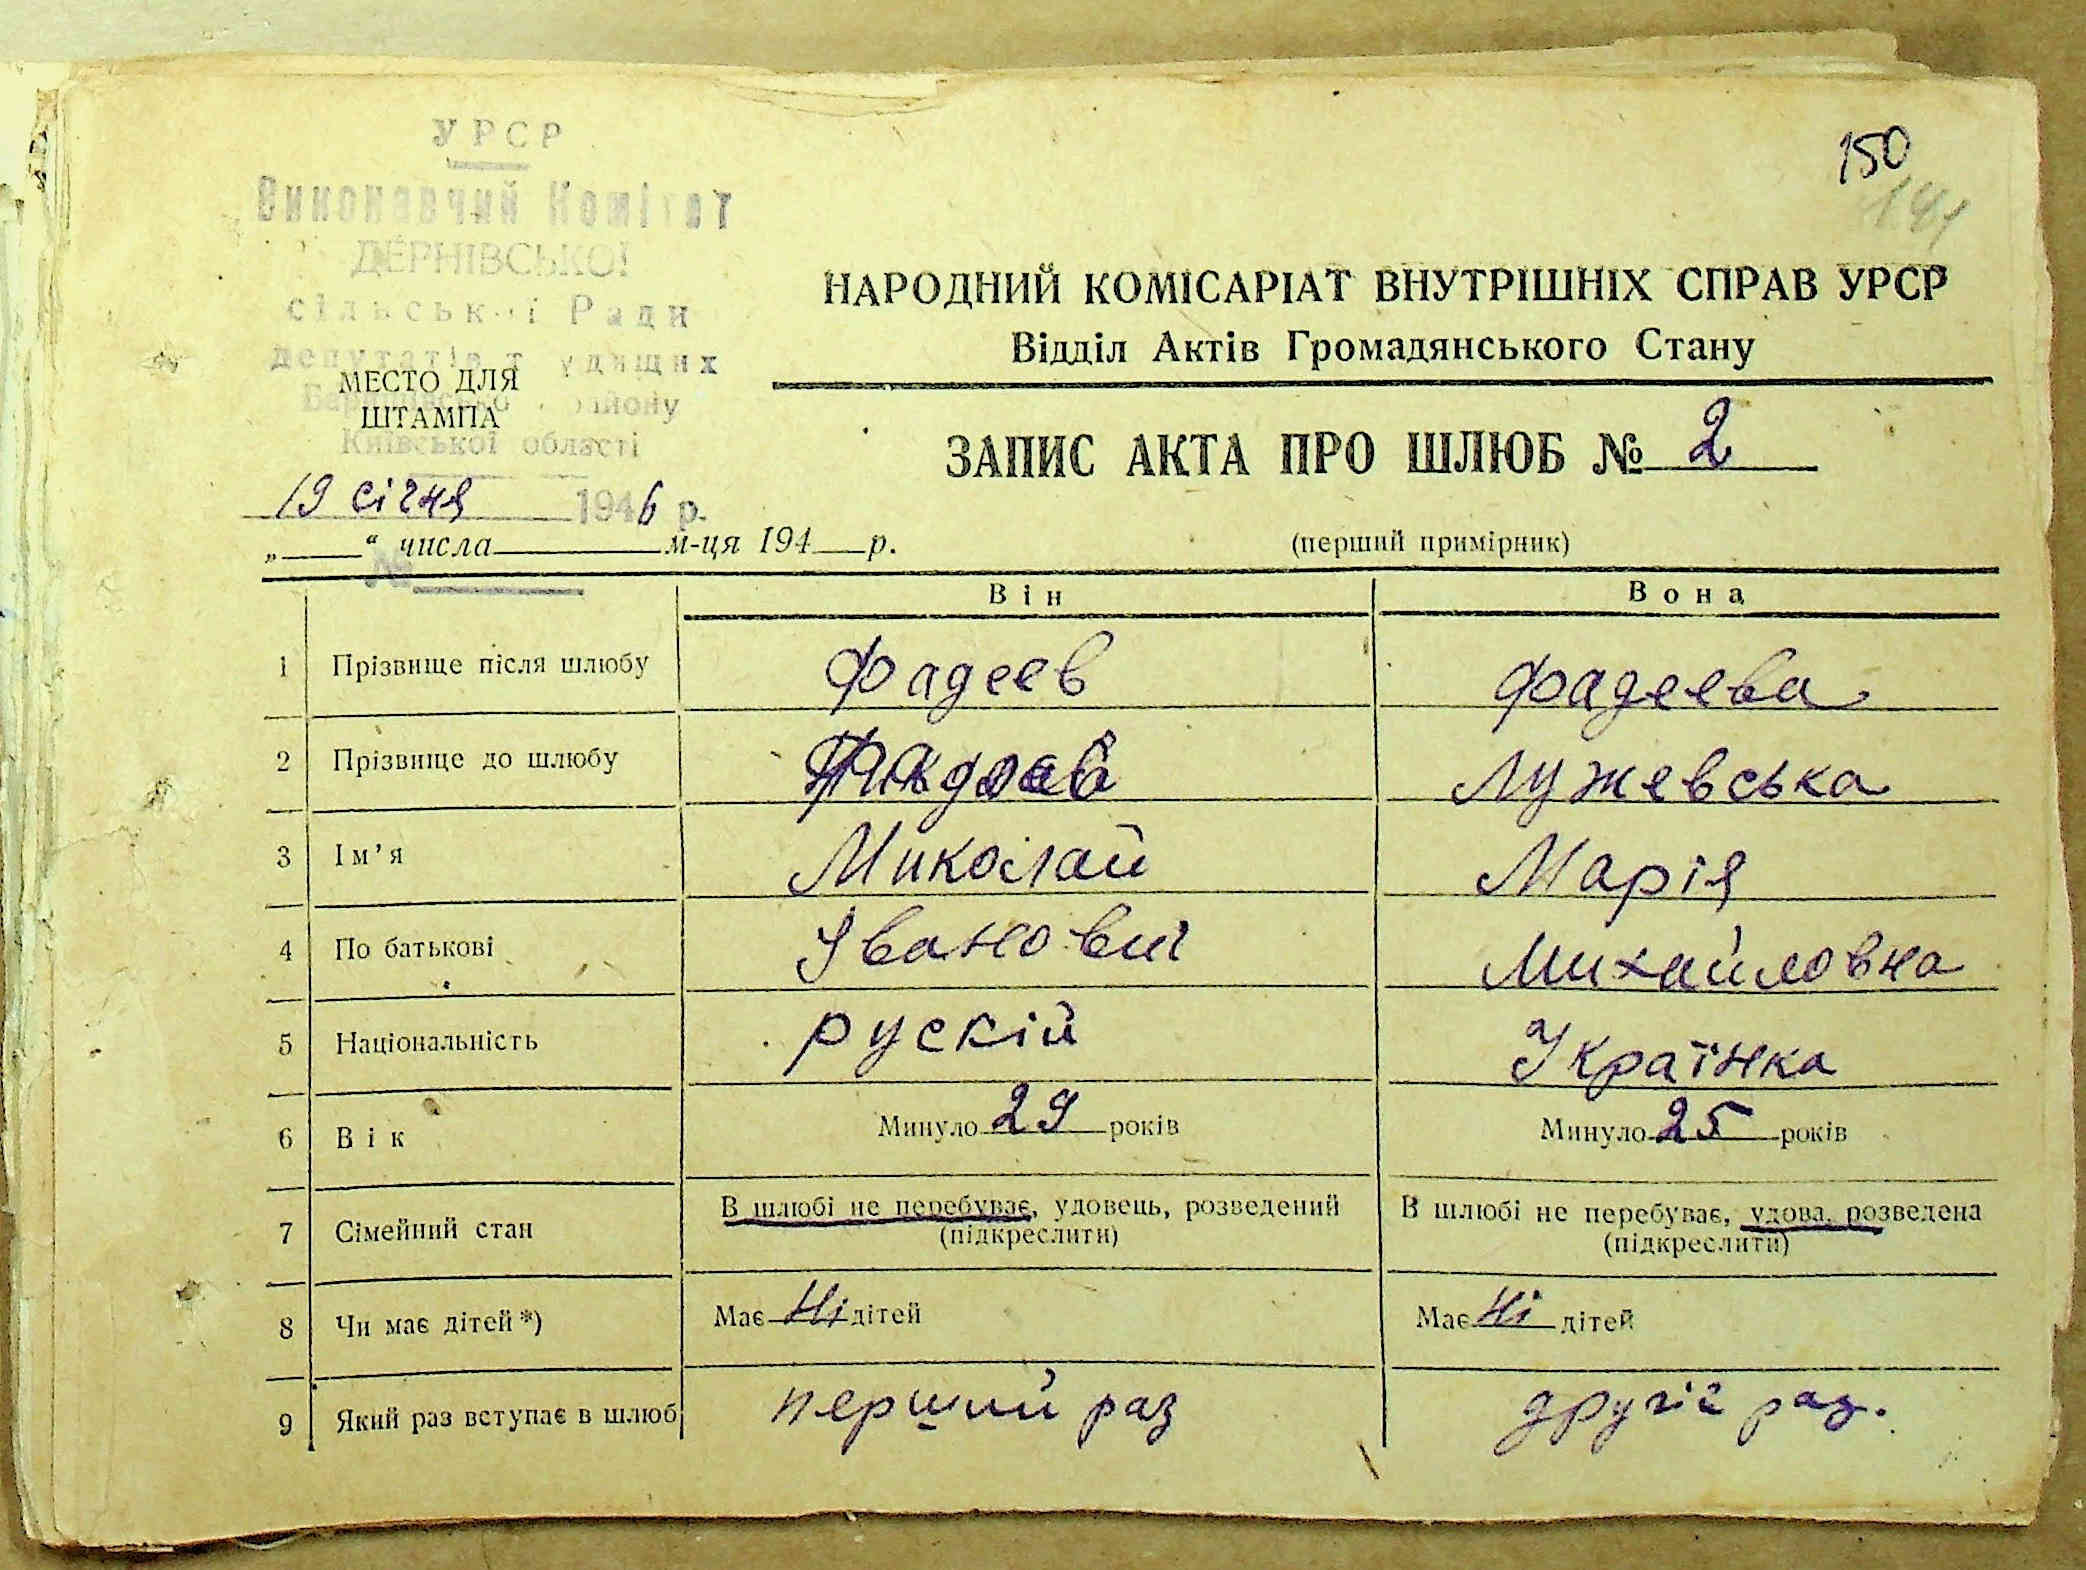 УРСР
Виконавчий Комітет
ДЕРНІВСЬКОЇ
сільської Ради
депутатів трудящих
району
Київської області
МЕСТО ДЛЯ
ШТАМПА
19 січня 1946 р.
„ “ числа м-ця 194 р.
№
150
141
НАРОДНИЙ КОМІСАРІАТ ВНУТРІШНІХ СПРАВ УРСР
Відділ Актів Громадянського Стану
ЗАПИС АКТА ПРО ШЛЮБ № 2
(перший примірник)
Він Вона
1 Прізвище після шлюбу Фадеев Фадеева
2 Прізвище до шлюбу Лужевська
3 Ім’я Миколай Марія
4 По батькові Іванович Михайловна
5 Національність рускій Українка
6 Вік Минуло 29 років Минуло 25 років
7 Сімейний стан В шлюбі не перебуває, удовець, розведений (підкреслити) В шлюбі не перебуває, удова, розведена (підкреслити)
8 Чи має дітей *) Має Ні дітей Має Ні дітей
9 Який раз вступає в шлюб перший раз другій раз.